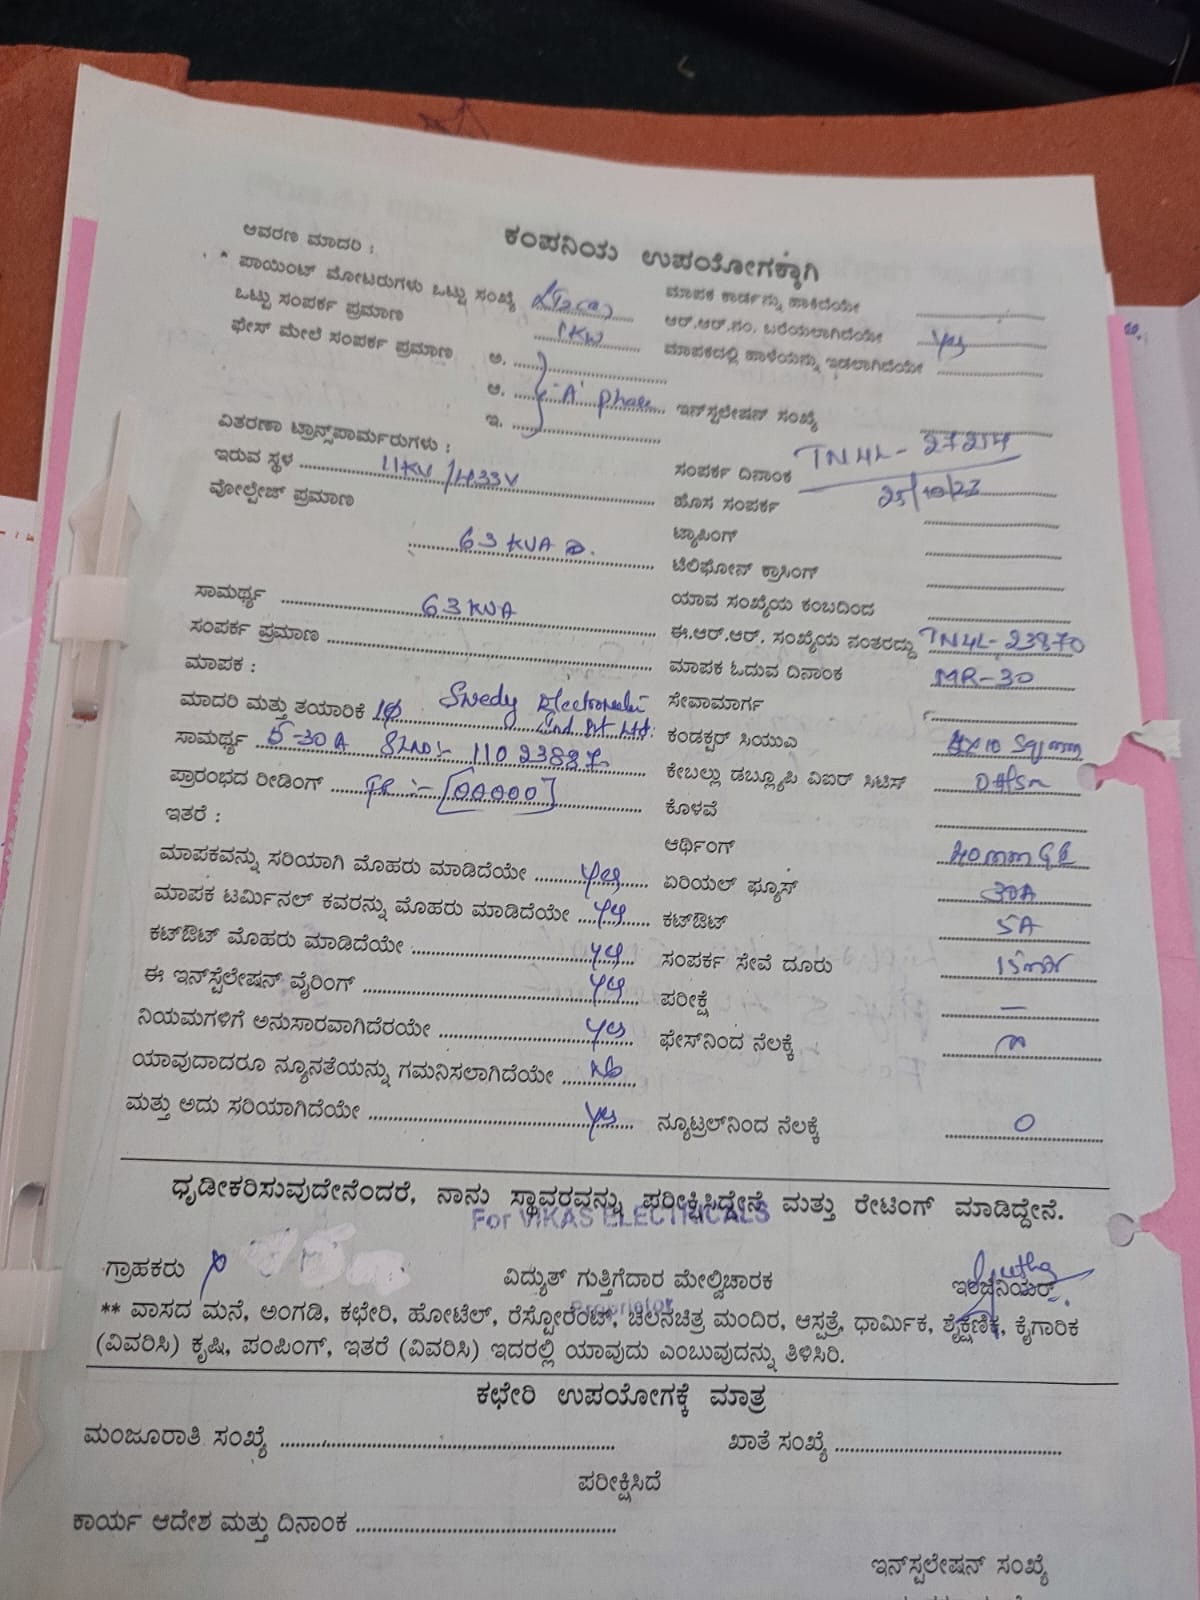 ಕಂಪನಿಯ ಉಪಯೋಗಕ್ಕಾಗಿ
ಆವರಣ ಮಾದರಿ :
* ಪಾಯಿಂಟ್ ಮೋಟರುಗಳು ಒಟ್ಟು ಸಂಖ್ಯೆ
ಒಟ್ಟು ಸಂಪರ್ಕ ಪ್ರಮಾಣ 1KW
ಫೇಸ್ ಮೇಲೆ ಸಂಪರ್ಕ ಪ್ರಮಾಣ ಅ.
ಆ. 'A' phase
ಇ.
ವಿತರಣಾ ಟ್ರಾನ್ಸ್‌ಪಾರ್ಮರುಗಳು :
ಇರುವ ಸ್ಥಳ 11KV/433V
ವೋಲ್ಟೇಜ್ ಪ್ರಮಾಣ
63 KVA
ಸಾಮರ್ಥ್ಯ 63 KVA
ಸಂಪರ್ಕ ಪ್ರಮಾಣ
ಮಾಪಕ :
ಮಾದರಿ ಮತ್ತು ತಯಾರಿಕೆ 1ϕ
ಸಾಮರ್ಥ್ಯ 5-30A SLNO:- 11023887
ಪ್ರಾರಂಭದ ರೀಡಿಂಗ್ FR :- [00000]
ಇತರೆ :
ಮಾಪಕವನ್ನು ಸರಿಯಾಗಿ ಮೊಹರು ಮಾಡಿದೆಯೇ yes
ಮಾಪಕ ಟರ್ಮಿನಲ್ ಕವರನ್ನು ಮೊಹರು ಮಾಡಿದೆಯೇ yes
ಕಟ್‌ಔಟ್ ಮೊಹರು ಮಾಡಿದೆಯೇ yes
ಈ ಇನ್‌ಸ್ಟಲೇಷನ್ ವೈರಿಂಗ್ yes
ನಿಯಮಗಳಿಗೆ ಅನುಸಾರವಾಗಿದೆರಯೇ yes
ಯಾವುದಾದರೂ ನ್ಯೂನತೆಯನ್ನು ಗಮನಿಸಲಾಗಿದೆಯೇ No
ಮತ್ತು ಅದು ಸರಿಯಾಗಿದೆಯೇ Yes
ಮಾಪಕ ಕಾರ್ಡನ್ನು ಹಾಕಿದೆಯೇ
ಆರ್.ಆರ್.ನಂ. ಬರೆಯಲಾಗಿದೆಯೇ Yes
ಮಾಪಕದಲ್ಲಿ ಹಾಳೆಯನ್ನು ಇಡಲಾಗಿದೆಯೇ
ಇನ್‌ಸ್ಟಲೇಷನ್ ಸಂಖ್ಯೆ
TN4L-27214
ಸಂಪರ್ಕ ದಿನಾಂಕ
ಹೊಸ ಸಂಪರ್ಕ
ಟ್ಯಾಪಿಂಗ್
ಟೆಲಿಫೋನ್ ಕ್ರಾಸಿಂಗ್
ಯಾವ ಸಂಖ್ಯೆಯ ಕಂಬದಿಂದ
ಈ.ಆರ್.ಆರ್. ಸಂಖ್ಯೆಯ ನಂತರದ್ದು TN4L-23870
ಮಾಪಕ ಓದುವ ದಿನಾಂಕ MR-30
ಸೇವಾಮಾರ್ಗ
ಕಂಡಕ್ಟರ್ ಸಿಯುಎ
ಕೇಬಲ್ಲು ಡಬ್ಲ್ಯೂಪಿ ವಿಐರ್ ಸಿಟಿಸ್
ಕೊಳವೆ
ಆರ್ಥಿಂಗ್ 40mm GI
ಏರಿಯಲ್ ಫ್ಯೂಸ್ 30A
ಕಟ್‌ಔಟ್ 5A
ಸಂಪರ್ಕ ಸೇವೆ ದೂರು
ಪರೀಕ್ಷೆ –
ಫೇಸ್‌ನಿಂದ ನೆಲಕ್ಕೆ
ನ್ಯೂಟ್ರಲ್‌ನಿಂದ ನೆಲಕ್ಕೆ 0
ಧೃಡೀಕರಿಸುವುದೇನೆಂದರೆ, ನಾನು ಸ್ಥಾವರವನ್ನು ಪರೀಕ್ಷಿಸಿದ್ದೇನೆ ಮತ್ತು ರೇಟಿಂಗ್ ಮಾಡಿದ್ದೇನೆ.
For VIKAS ELECTRICALS
ಗ್ರಾಹಕರು ವಿದ್ಯುತ್ ಗುತ್ತಿಗೆದಾರ ಮೇಲ್ವಿಚಾರಕ ಇಂಜಿನಿಯರ್
Proprietor
** ವಾಸದ ಮನೆ, ಅಂಗಡಿ, ಕಛೇರಿ, ಹೋಟೆಲ್, ರೆಸ್ಟೋರೆಂಟ್, ಚಲನಚಿತ್ರ ಮಂದಿರ, ಆಸ್ಪತ್ರೆ, ಧಾರ್ಮಿಕ, ಶೈಕ್ಷಣಿಕ, ಕೈಗಾರಿಕ
(ವಿವರಿಸಿ) ಕೃಷಿ, ಪಂಪಿಂಗ್, ಇತರೆ (ವಿವರಿಸಿ) ಇದರಲ್ಲಿ ಯಾವುದು ಎಂಬುವುದನ್ನು ತಿಳಿಸಿರಿ.
ಕಛೇರಿ ಉಪಯೋಗಕ್ಕೆ ಮಾತ್ರ
ಮಂಜೂರಾತಿ ಸಂಖ್ಯೆ ಖಾತೆ ಸಂಖ್ಯೆ
ಪರೀಕ್ಷಿಸಿದೆ
ಕಾರ್ಯ ಆದೇಶ ಮತ್ತು ದಿನಾಂಕ
ಇನ್‌ಸ್ಟಲೇಷನ್ ಸಂಖ್ಯೆ